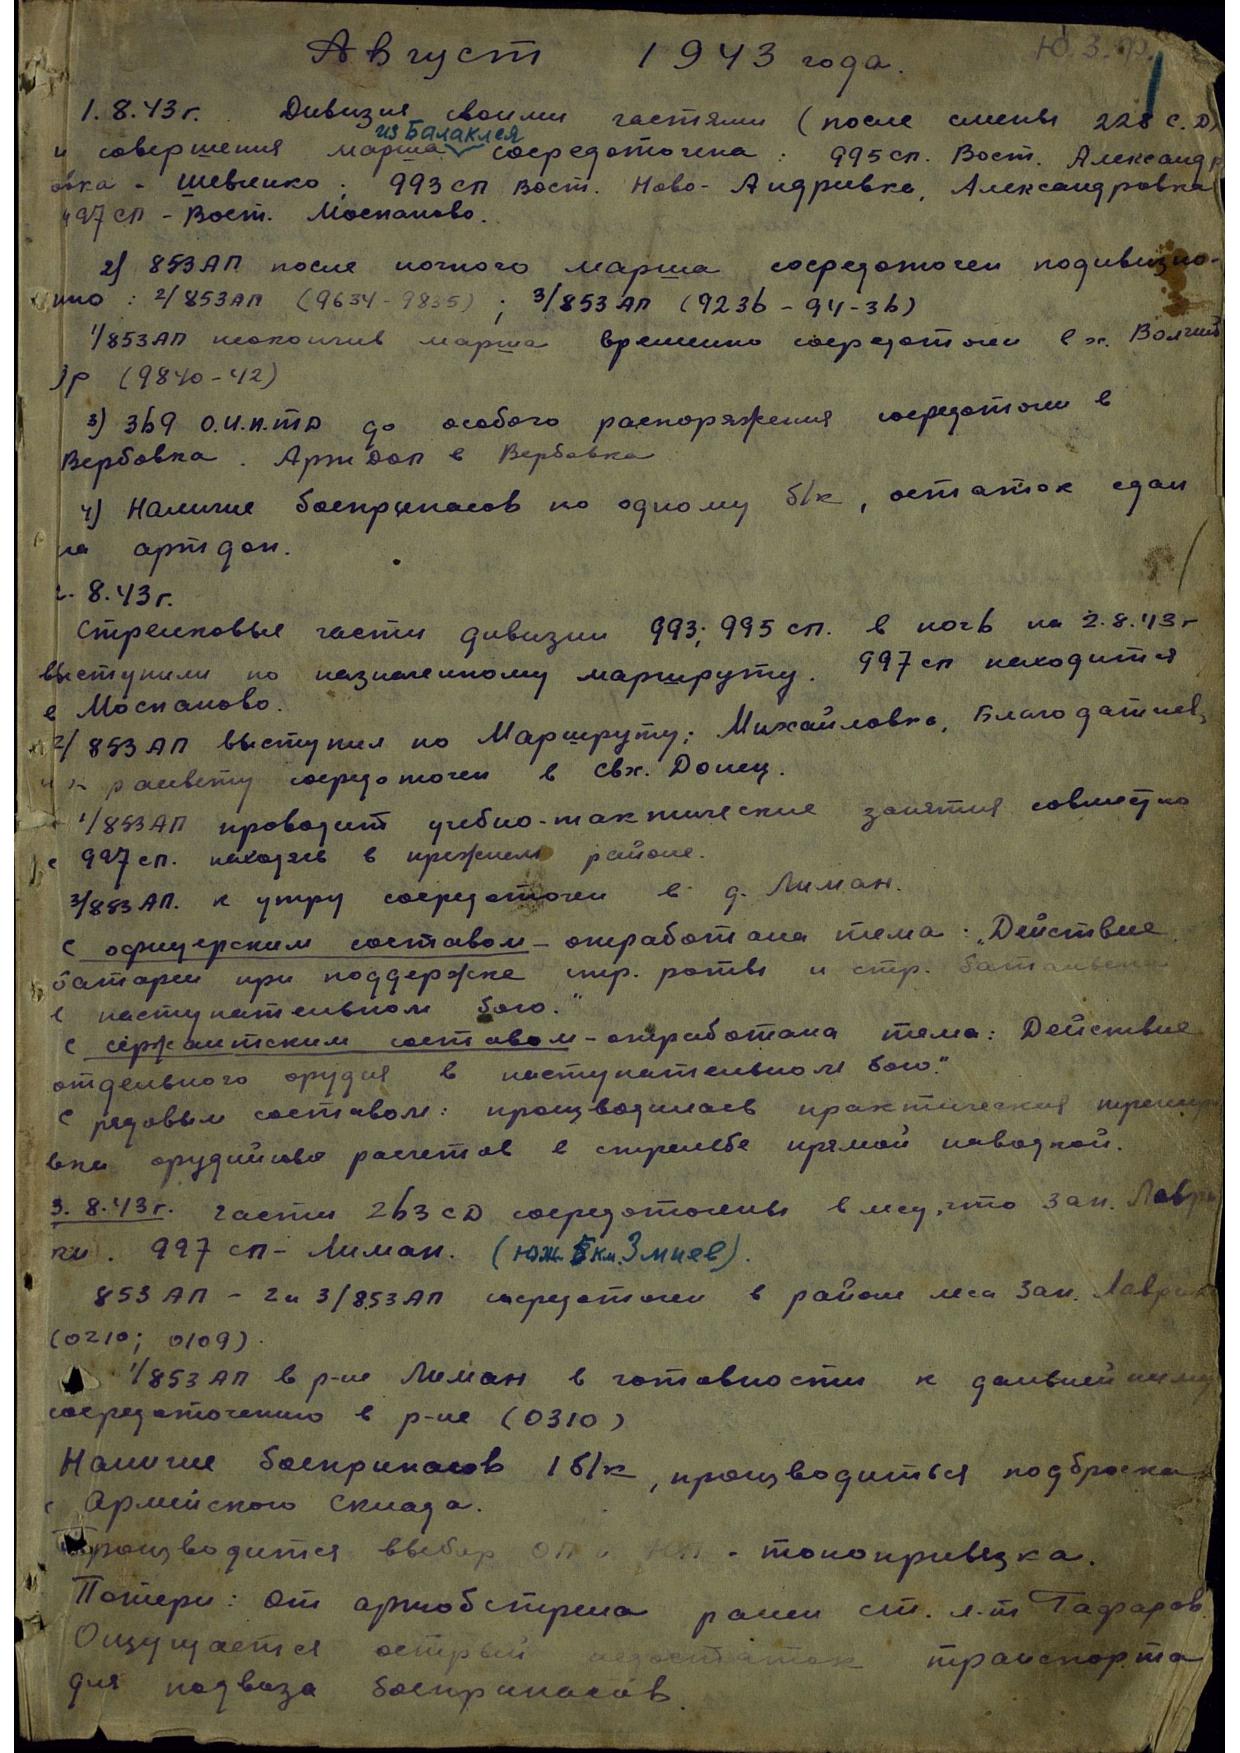 Ю.З.Ф.
Август 1943 года.
1.8.43г. Дивизия своими частями (после смены 228 с.д)
из Балаклея
и совершения марша сосредоточена: 995сп. Вост. Александр
овка - Шевченко; 993 сп Вост. Ново-Андривка, Александровка
997 сп - Вост. Моспаново.
2) 853 АП после ночного марша сосредоточен подивизио-
нно: 2/853АП (9634-9835); 3/853 АП (9236-94-36)
1/853АП неокончив марша временно сосредоточен в х. Волчий
Яр (9840-42)
3) 369 О.И.П.ТД до особого распоряжения сосредоточен в
Вербовка. АртДоп в Вербовка
4) Наличие боеприпасов по одному б/к, остаток сдан
на артдоп.
2.8.43г.
Стрелковые части дивизии 993; 995 сп. в ночь на 2.8.43г
выступили по назначенному маршруту. 997 сп находится
в Моспаново.
2/853 АП выступил по Маршруту: Михайловка, Благодатнев,
и к рассвету сосредоточен в свх. Донец.
1/853АП проводит учебно-тактические занятия совместно
с 997 сп. находясь в прежнем районе.
3/883 АП. к утру сосредоточен в д. Лиман.
С офицерским составом - отработана тема: "Действие
батареи при поддержке стр. роты и стр. батальона
в наступательном бою."
С сержантским составом - отработана тема: Действие
отдельного орудия в наступательном бою."
С рядовым составом: производилась практическая трениро
вка орудийнов расчетов в стрельбе прямой наводкой.
3.8.43г. Части 263 сд сосредоточены в лесу, что зап. Лаври
ки. 997 сп - Лиман. (юж. 5 км. Змиев).
853 АП - 2 и 3/853 АП сосредоточен в районе леса Зап. Лаврик
(0210; 0109).
1/853 АП в р-не Лиман в готовности к дальнейшему
сосредоточению в р-не (0310)
Наличие боеприпасов 1 б/к, производиться подброска
с Армейского Склада.
Производится выбор ОП и НП - топопривязка.
Потери: От артобстрела ранен ст. л-т Гафаров.
Ощущается острый недостаток транспорта
для подвоза боеприпасов.